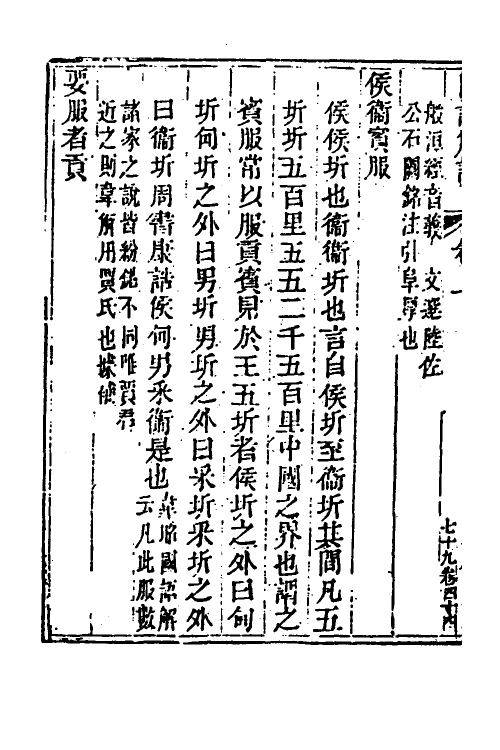 般涅經音義 文選陸佐
公石闕銘注引阜學也
侯衞賓服
侯侯圻也衞衞圻也言自侯圻至衞圻其間凡五
圻圻五百里五五二千五百里中國之界也謂之
賓服常以服貢賓見於王五圻者侯圻之外曰甸
圻甸圻之外曰男圻男圻之外曰采圻采圻之外
曰衞圻周書康誥侯甸男采衞是也韋昭國語解
云凡此服數
諸家之說皆紛錯不同唯賈君
近之則韋解用賈氏也據傳
要服者貢
七十九卷四十四